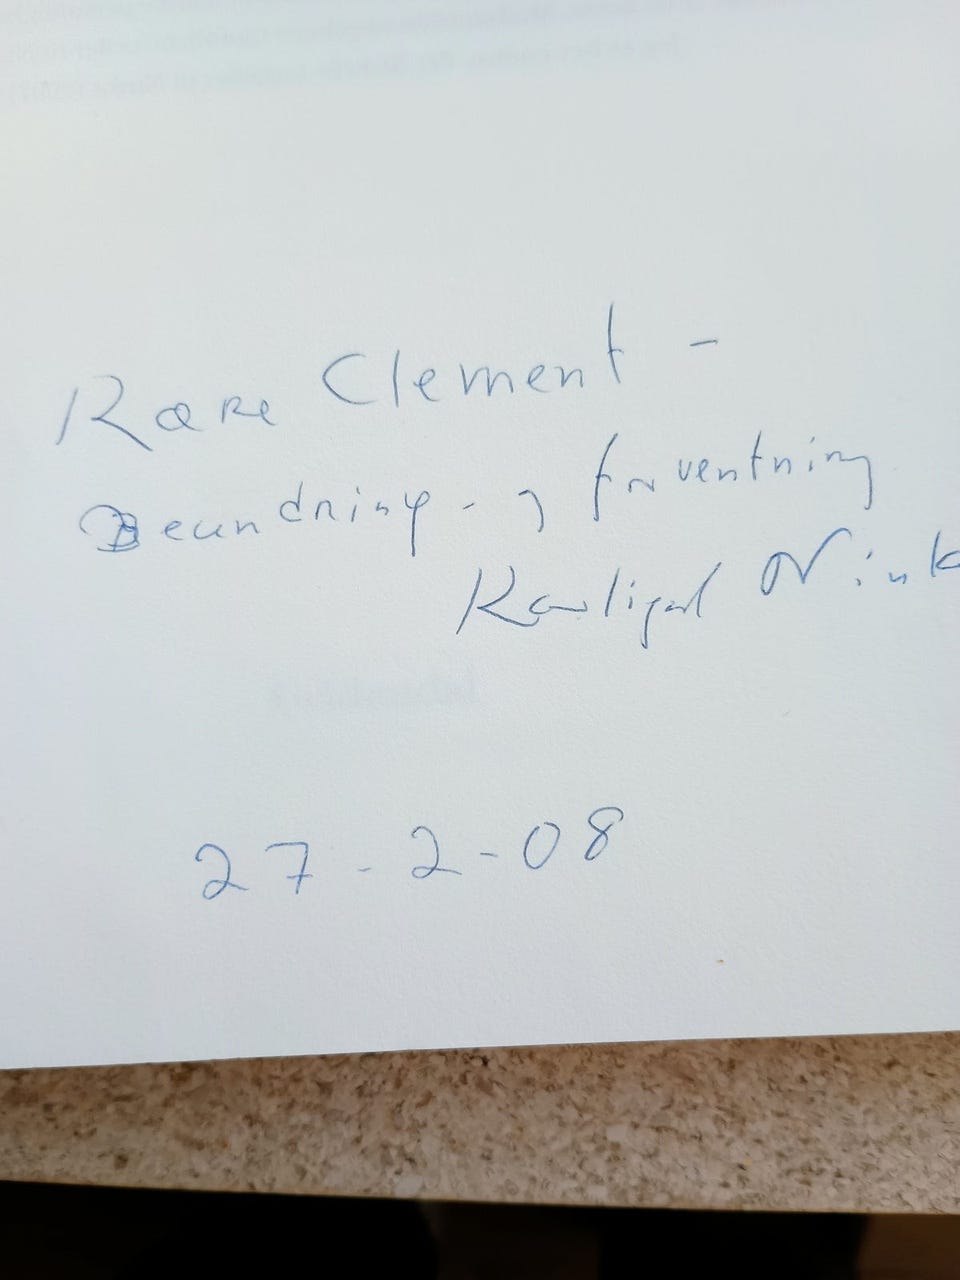 Kære Clement -
Beundring - og forventning
Kærligst Nink
27-2-08